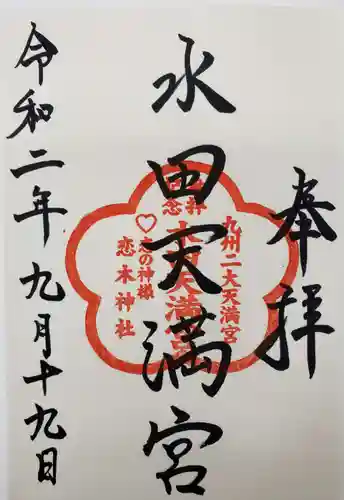 奉拝
水田天満宮
令和二年九月十九日
九州二大天満宮
参拝
記念
水田天満宮
♡恋の神様
恋木神社